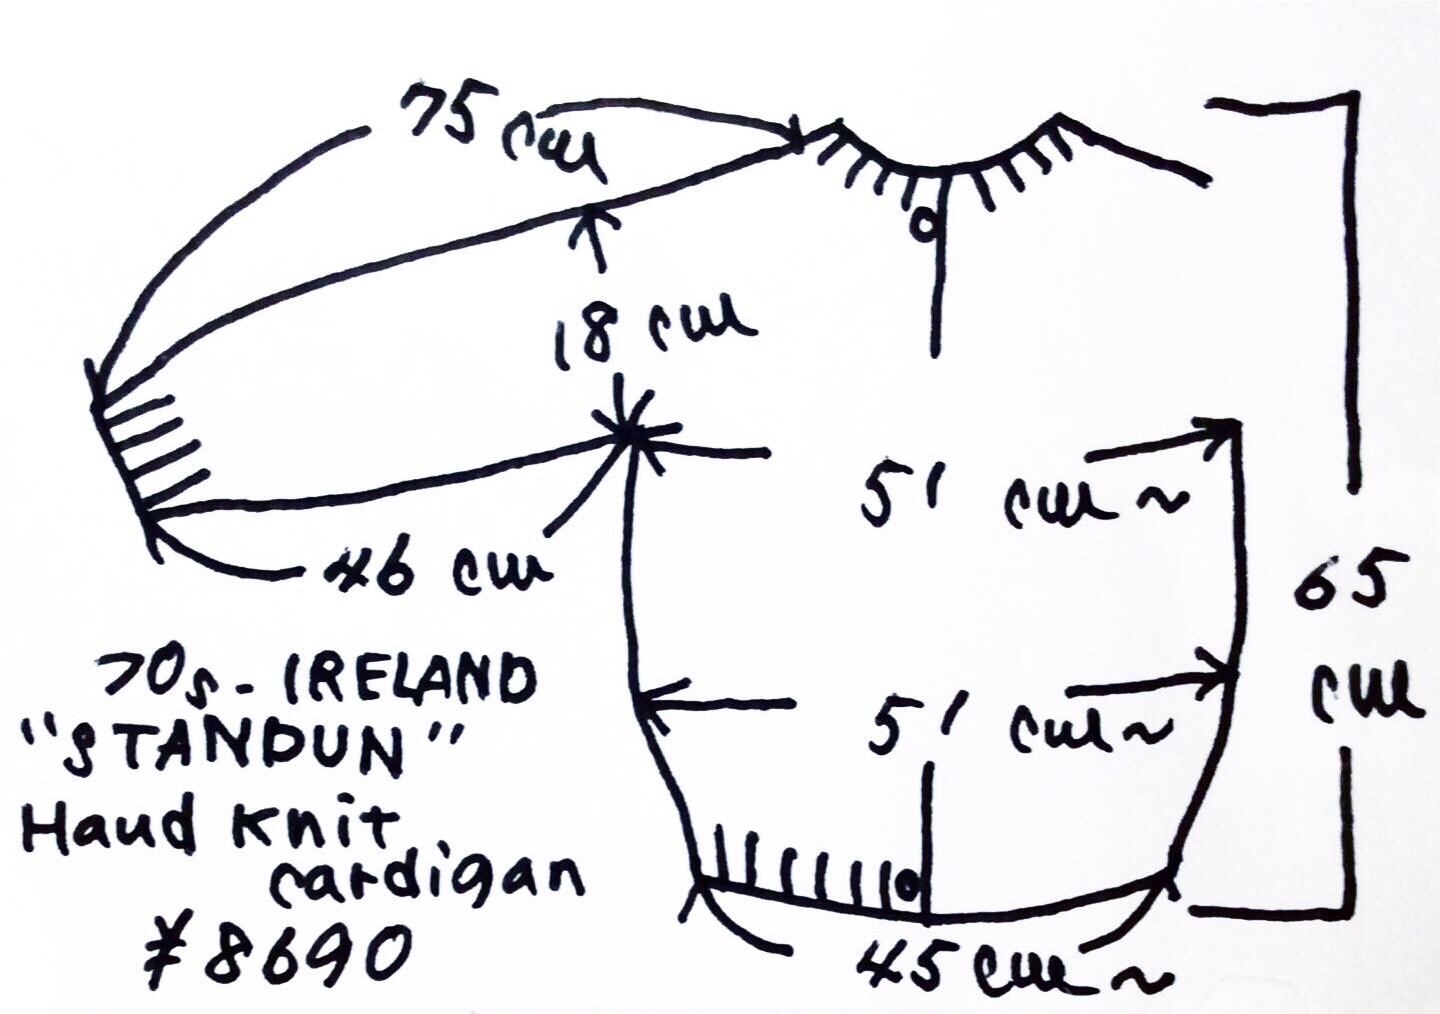 75 cm
18 cm
51 cm ~
46 cm
65
cm
51 cm ~
70s - IRELAND
"STANDUN"
Hand Knit
cardigan
¥8690
45 cm ~